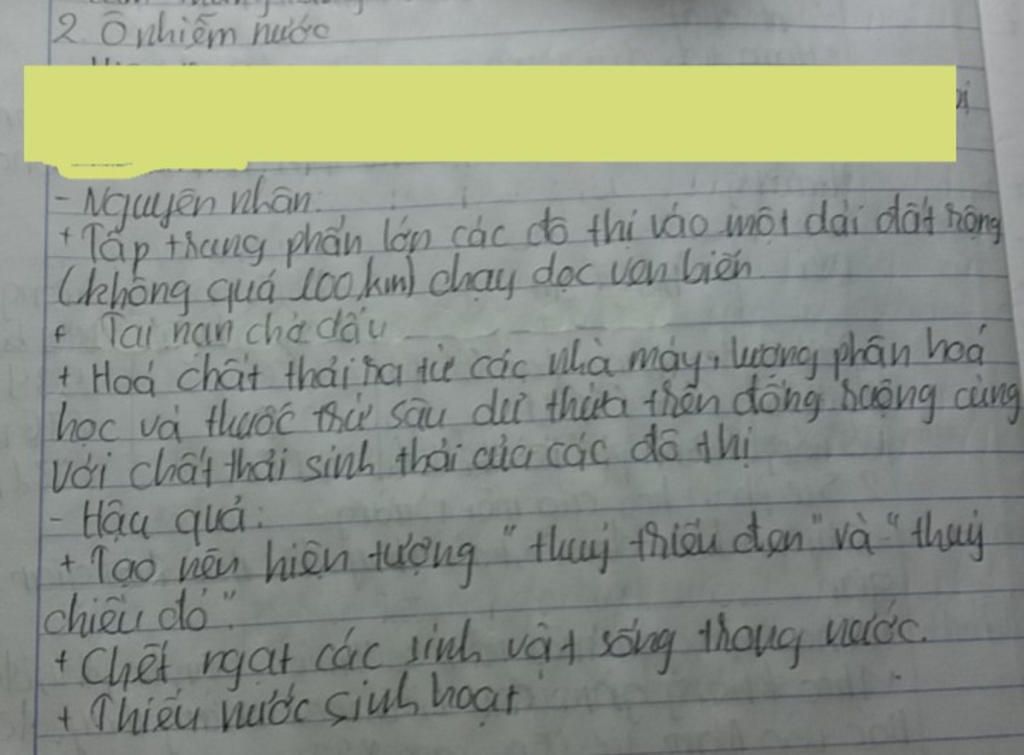 2. Ô nhiễm nước
- Nguyên nhân:
+ Tập trung phần lớn các đô thị vào một dải đất rộng
(không quá 100 km) chạy dọc ven biển
+ Tai nạn chở dầu
+ Hoá chất thải ra từ các nhà máy, lượng phân hoá
học và thuốc trừ sâu dư thừa trên đồng ruộng cùng
với chất thải sinh thải của các đô thị
- Hậu quả:
+ Tạo nên hiện tượng "thuỷ triều đen" và "thuỷ
chiều đỏ".
+ Chết ngạt các sinh vật sống trong nước.
+ Thiếu nước sinh hoạt